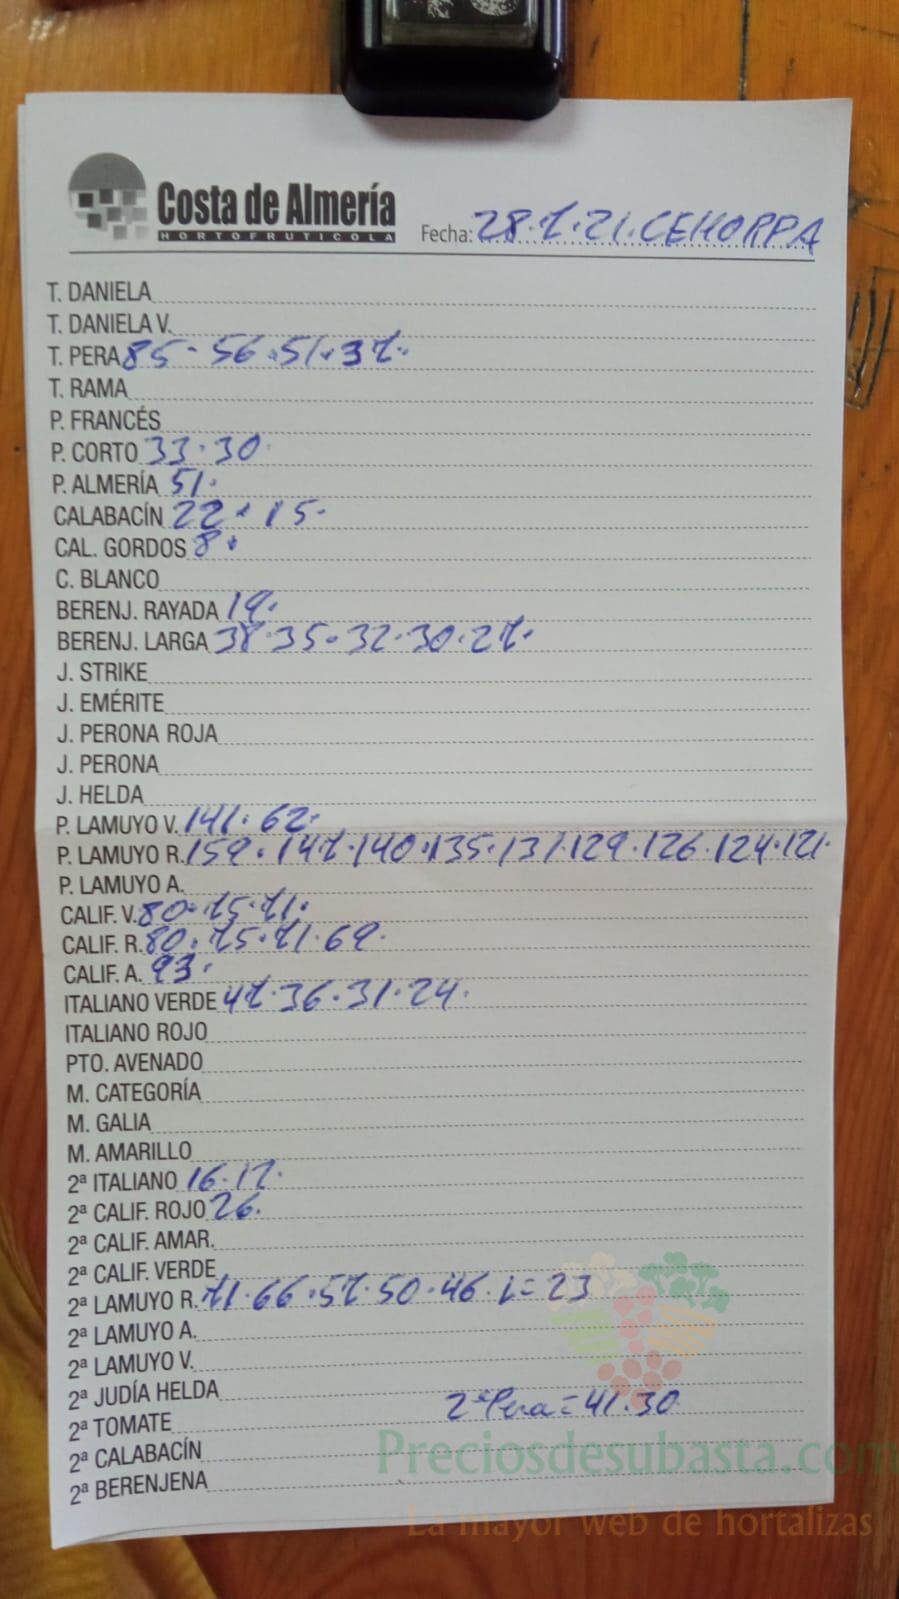 Costa de Almería
HORTOFRUTICOLA
Fecha: 28.7.21. CEHORPA
T. DANIELA
T. DANIELA V.
T. PERA 85. 56. 51. 37.
T. RAMA
P. FRANCÉS
P. CORTO 33. 30.
P. ALMERÍA 51.
CALABACÍN 22. 15.
CAL. GORDOS 8.
C. BLANCO
BERENJ. RAYADA 19.
BERENJ. LARGA 38. 35. 32. 30. 27.
J. STRIKE
J. EMÉRITE
J. PERONA ROJA
J. PERONA
J. HELDA
P. LAMUYO V. 141. 62.
P. LAMUYO R. 159. 147. 140. 135. 131. 129. 126. 124. 121.
P. LAMUYO A.
CALIF. V. 80. 75. 71.
CALIF. R. 80. 75. 71. 69.
CALIF. A. 93.
ITALIANO VERDE 47. 36. 31. 24.
ITALIANO ROJO
PTO. AVENADO
M. CATEGORÍA
M. GALIA
M. AMARILLO
2ª ITALIANO 16. 17.
2ª CALIF. ROJO 26.
2ª CALIF. AMAR.
2ª CALIF. VERDE
2ª LAMUYO R. 71. 66. 57. 50. 46. = 23
2ª LAMUYO A.
2ª LAMUYO V.
2ª JUDÍA HELDA
2ª Pera = 41. 30
2ª TOMATE
2ª CALABACÍN
2ª BERENJENA
Preciosdesubasta.com
La mayor web de hortalizas